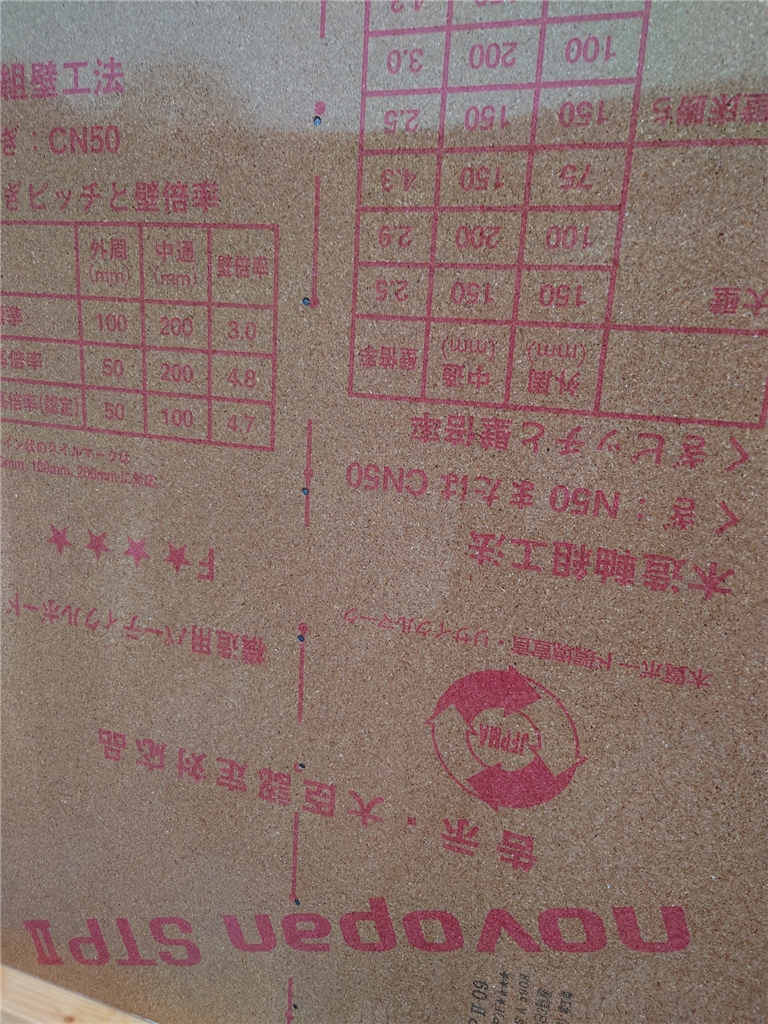 novopan STPⅡ
告示・大臣認定対応品
木質ボード環境宣言・リサイクルマーク
JFPMA
構造用パーティクルボード
F★★★★
木造軸組工法
くぎ：N50 または CN50
くぎピッチと壁倍率
外周(mm) 中通(mm) 壁倍率
大壁 150 150 2.5
100 200 2.9
75 150 4.3
壁床勝ち 150 150 2.5
100 200 3.0
組壁工法
ぎ：CN50
ぎピッチと壁倍率
外周(mm) 中通(mm) 壁倍率
準 100 200 3.0
高倍率 50 200 4.8
高倍率(認定) 50 100 4.7
イン状のネイルマークは
mm, 100mm, 200mmに対応
60Ⅱ